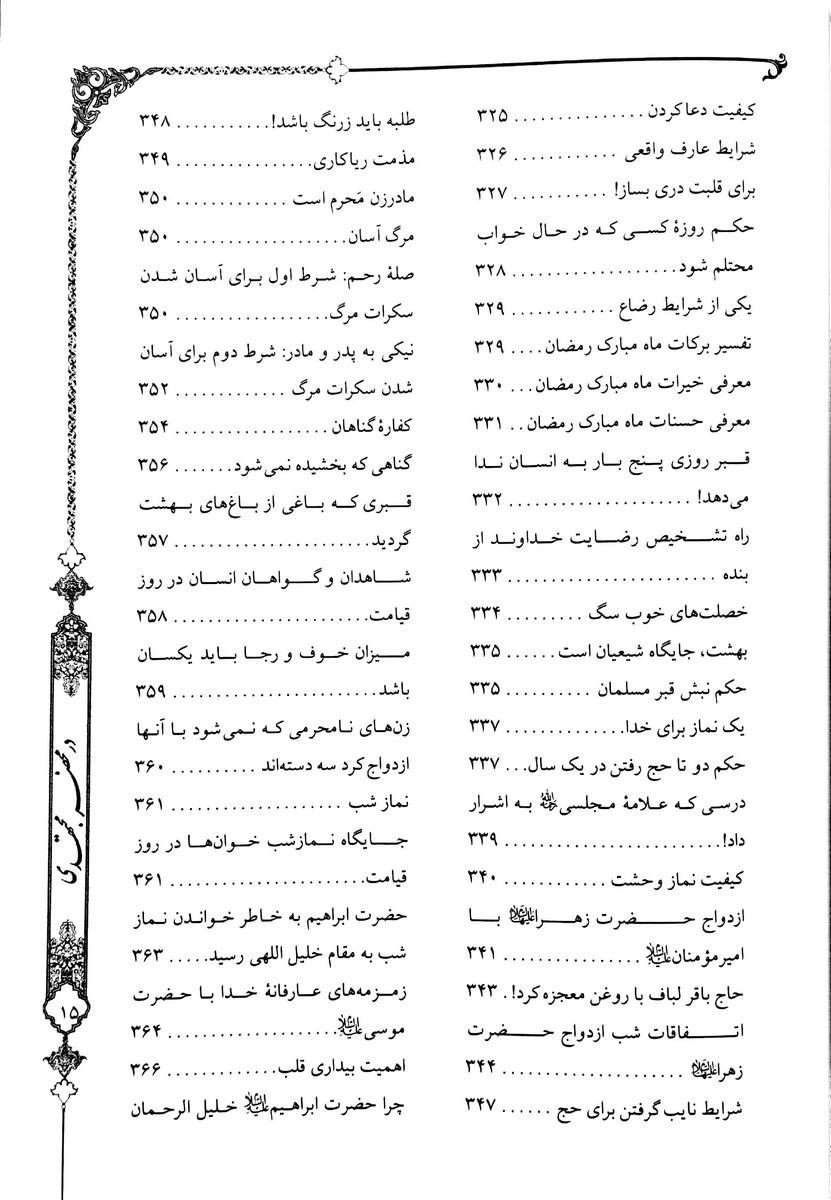 کیفیت دعا کردن ............... ۳۲۵
شرایط عارف واقعی ............ ۳۲۶
برای قلبت دری بساز! ........... ۳۲۷
حکم روزهٔ کسی که در حال خواب
محتلم شود ................... ۳۲۸
یکی از شرایط رضاع ............ ۳۲۹
تفسیر برکات ماه مبارک رمضان .... ۳۲۹
معرفی خیرات ماه مبارک رمضان ... ۳۳۰
معرفی حسنات ماه مبارک رمضان .. ۳۳۱
قبر روزی پنج بار به انسان ندا
می‌دهد! ..................... ۳۳۲
راه تشخیص رضایت خداوند از
بنده ........................ ۳۳۳
خصلت‌های خوب سگ ......... ۳۳۴
بهشت، جایگاه شیعیان است ...... ۳۳۵
حکم نبش قبر مسلمان .......... ۳۳۵
یک نماز برای خدا .............. ۳۳۷
حکم دو تا حج رفتن در یک سال ... ۳۳۷
درسی که علامهٔ مجلسی رحمه‌الله به اشرار
داد! ......................... ۳۳۹
کیفیت نماز وحشت ............ ۳۴۰
ازدواج حضرت زهرا علیهاالسلام با
امیرمؤمنان علیه‌السلام ................ ۳۴۱
حاج باقر لباف با روغن معجزه کرد! . ۳۴۳
اتفاقات شب ازدواج حضرت
زهرا علیهاالسلام ...................... ۳۴۴
شرایط نایب گرفتن برای حج ...... ۳۴۷
طلبه باید زرنگ باشد! ............ ۳۴۸
مذمت ریاکاری ................ ۳۴۹
مادرزن مَحرم است ............. ۳۵۰
مرگ آسان .................... ۳۵۰
صلهٔ رحم: شرط اول برای آسان شدن
سکرات مرگ .................. ۳۵۰
نیکی به پدر و مادر: شرط دوم برای آسان
شدن سکرات مرگ ............. ۳۵۲
کفارهٔ گناهان .................. ۳۵۴
گناهی که بخشیده نمی‌شود ....... ۳۵۶
قبری که باغی از باغ‌های بهشت
گردید ....................... ۳۵۷
شاهدان و گواهان انسان در روز
قیامت ...................... ۳۵۸
میزان خوف و رجا باید یکسان
باشد ....................... ۳۵۹
زن‌های نامحرمی که نمی‌شود با آنها
ازدواج کرد سه دسته‌اند .......... ۳۶۰
نماز شب .................... ۳۶۱
جایگاه نمازشب خوان‌ها در روز
قیامت ...................... ۳۶۱
حضرت ابراهیم به خاطر خواندن نماز
شب به مقام خلیل اللهی رسید ..... ۳۶۳
زمزمه‌های عارفانهٔ خدا با حضرت
موسی علیه‌السلام .................... ۳۶۴
اهمیت بیداری قلب ............ ۳۶۶
چرا حضرت ابراهیم علیه‌السلام خلیل الرحمان
در محضر مجتهدی
۱۵